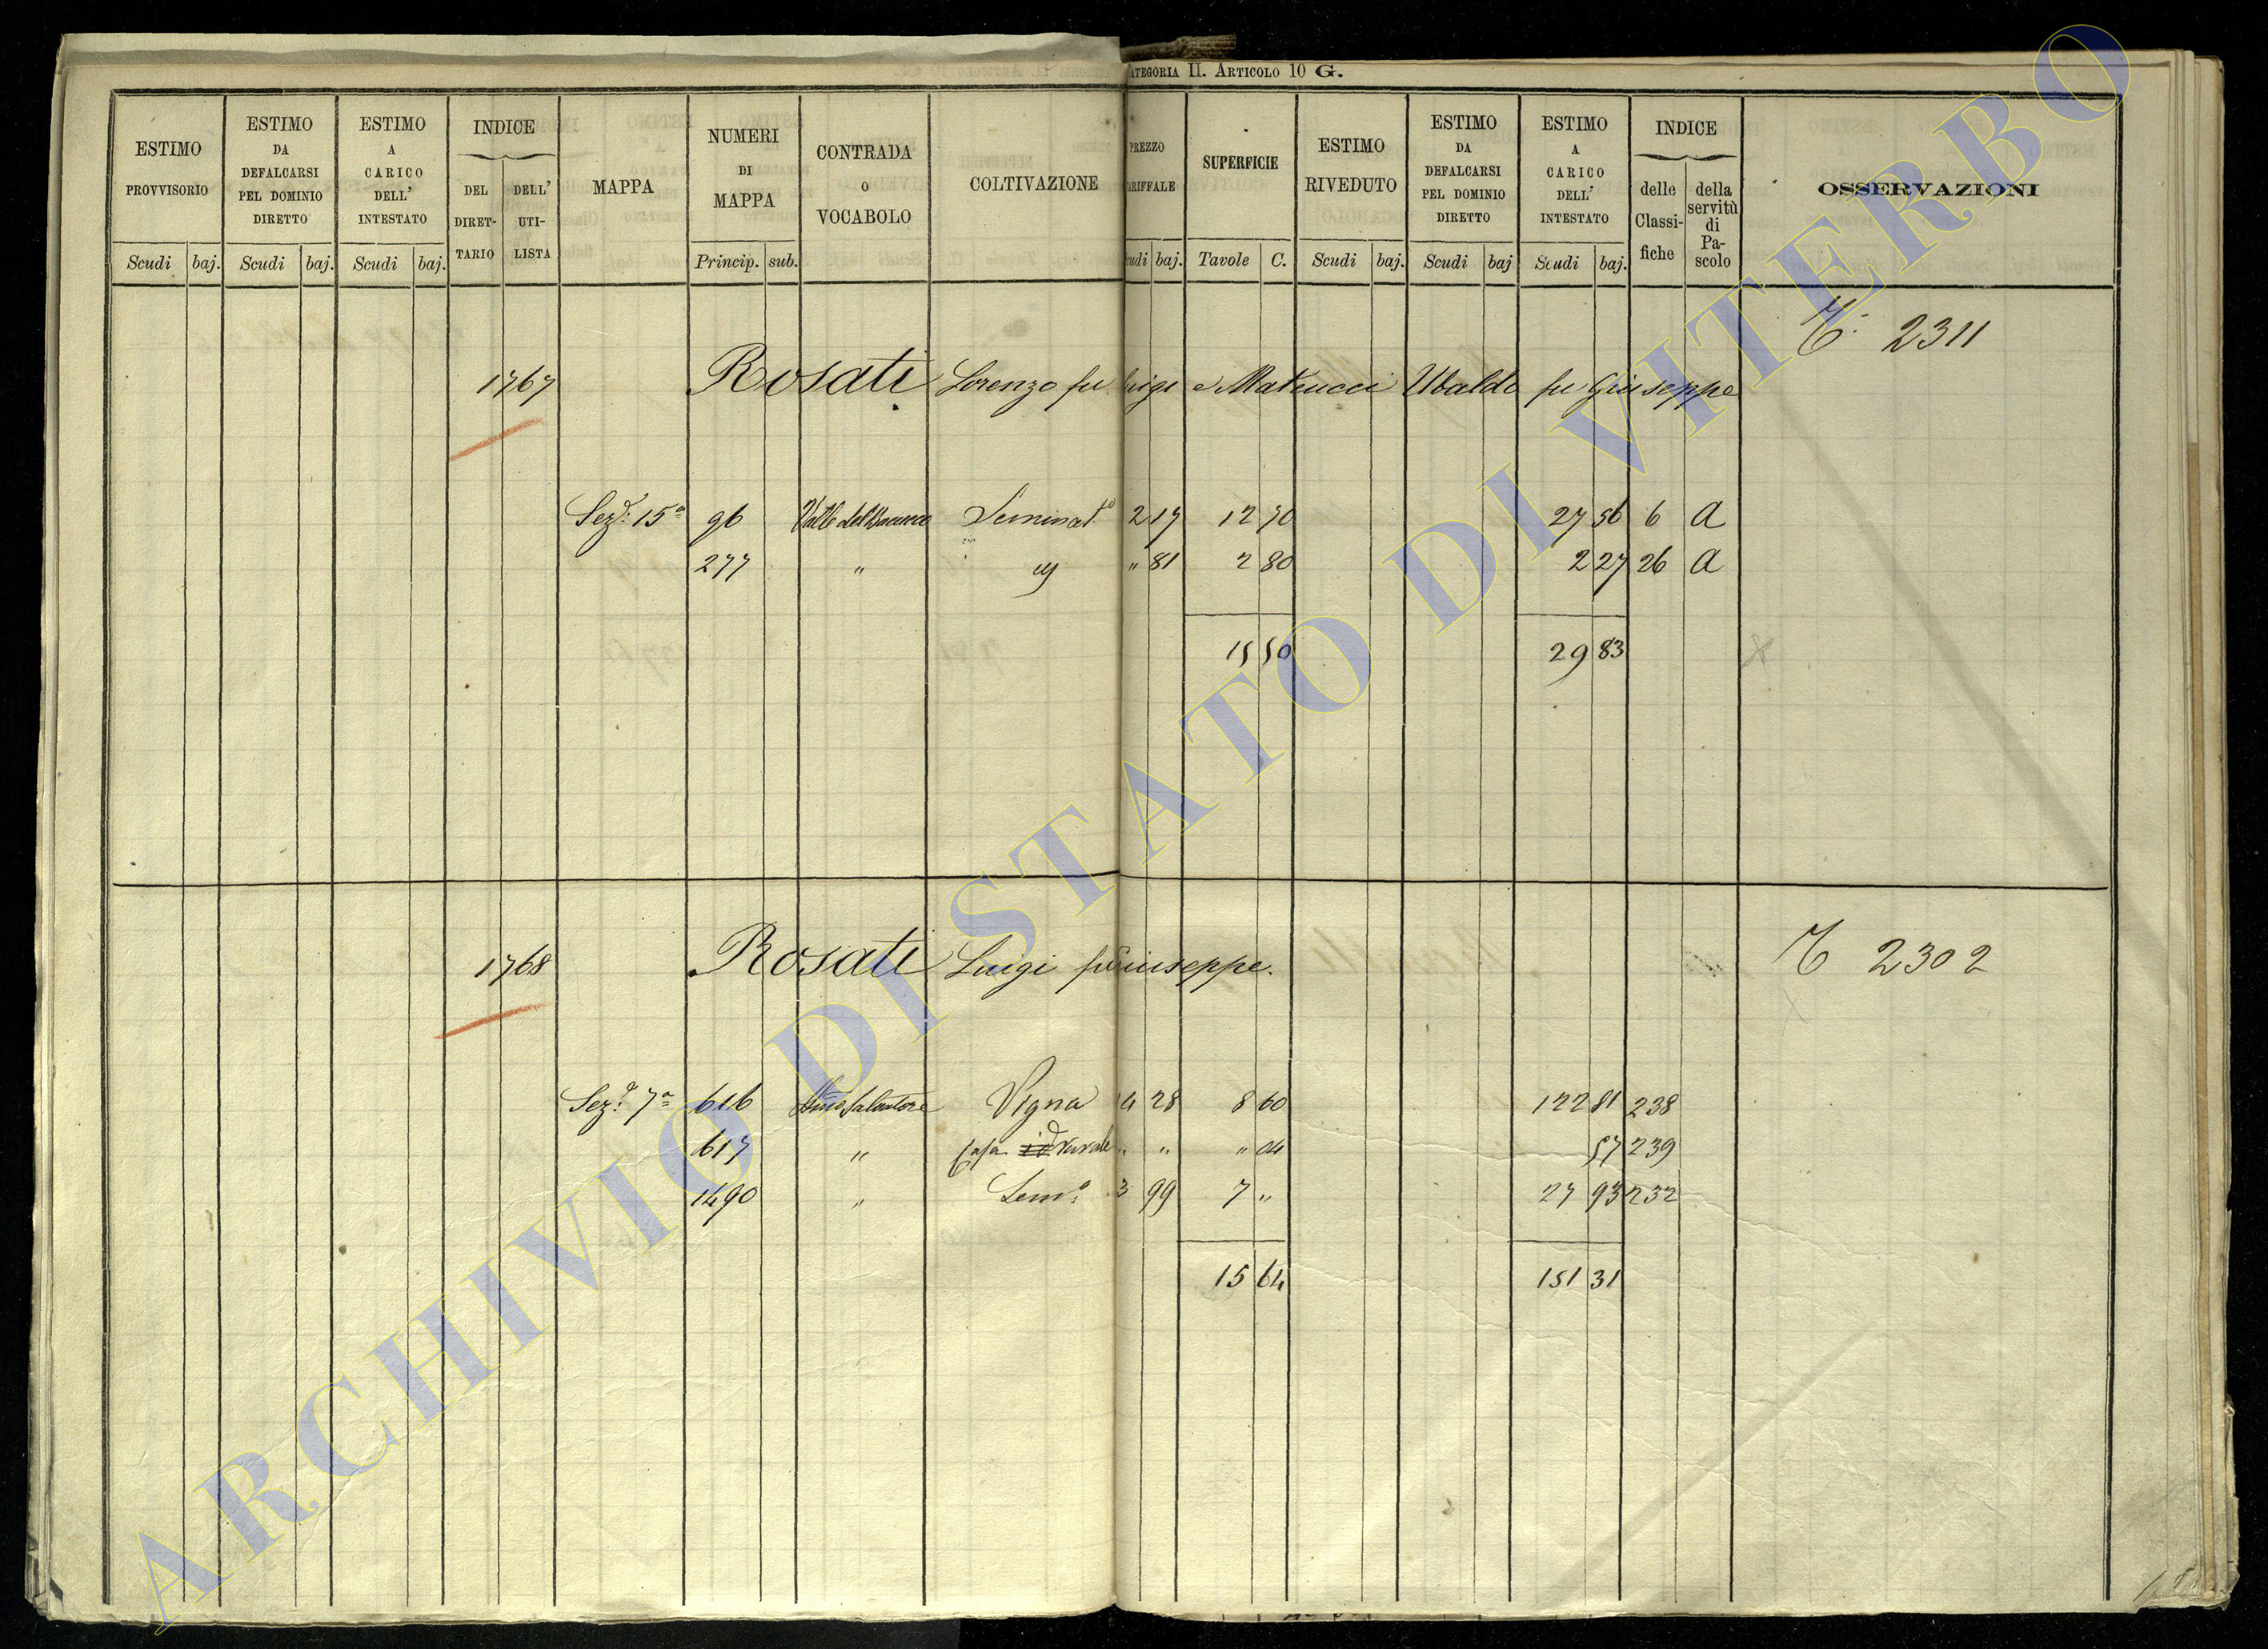 ATEGORIA II. ARTICOLO 10 G.
ESTIMO PROVVISORIO
ESTIMO DA DEFALCARSI PEL DOMINIO DIRETTO
ESTIMO A CARICO DELL' INTESTATO
INDICE
DEL DIRET-TARIO
DELL' UTI-LISTA
MAPPA
NUMERI DI MAPPA
CONTRADA O VOCABOLO
COLTIVAZIONE
PREZZO ARIFFALE
SUPERFICIE
ESTIMO RIVEDUTO
ESTIMO DA DEFALCARSI PEL DOMINIO DIRETTO
ESTIMO A CARICO DELL' INTESTATO
INDICE
delle Classi-fiche
della servitù di Pa-scolo
OSSERVAZIONI
Scudi baj. Scudi baj. Scudi baj. Princip. sub. udi baj. Tavole C. Scudi baj. Scudi baj Scudi baj.
2311
1767 Rosati Lorenzo fu Luigi e Mateucci Ubaldo fu Giuseppe
Sez.e 15a 96 Valle del Seminato 2 17 12 70 27 56 6 A
277 " " 81 2 80 2 27 26 A
15 50 29 83
1768 Rosati Luigi fu Giuseppe.
2302
Sez.e 7a 616 Salvatore Vigna 14 28 8 60 122 81 238
617 " Casa id rurale " " " 04 57 239
1490 " Sem.o 3 99 7 " 27 93 232
15 64 151 31
ARCHIVIO DI STATO DI VITERBO